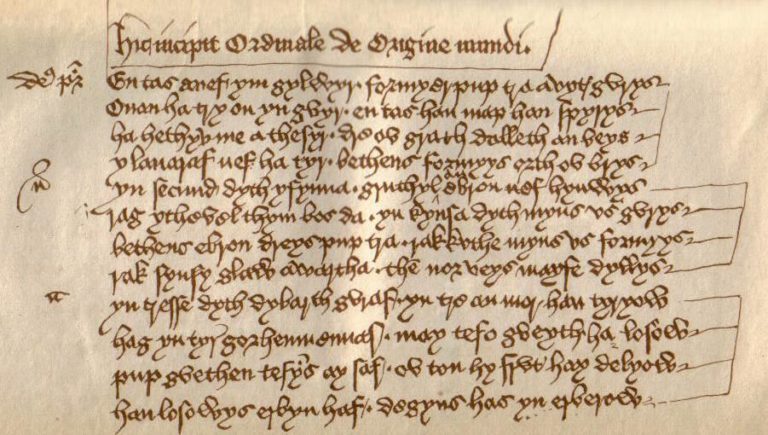 Hic incipit Ordinale de Origine mundi.
de⁹ pr̄ En tas a nef ym gylwyr · formyer pup tra a vyt gvrys
Onan ha try on yn gvyr · en tas han map han spyrys
ha hethyv me a thesyr · dre ov grath dalleth an beys
y lavaraf nef ha tyr · bethens formyys orth ov brys
yn secund dyth y fynna · gruthyl ebron nef hynwys
rag ythevel thym bos da · yn kynsa dyth myns vs gvrys
bethens ebron dreys pup tra · rak kuthe myns vs formyys
rak synsy glaw awartha · the norveys may fe dywys
yn tresse dyth dybarth gvraf · yn tre an mor han tyryow
hag yn tyr gorhenmennaf · may tefo gveyth ha losow
pup gvethen tefyns ay saf · ov ton hy frvt hay delyow
han losowys erbyn haf · degyns has yn erberow